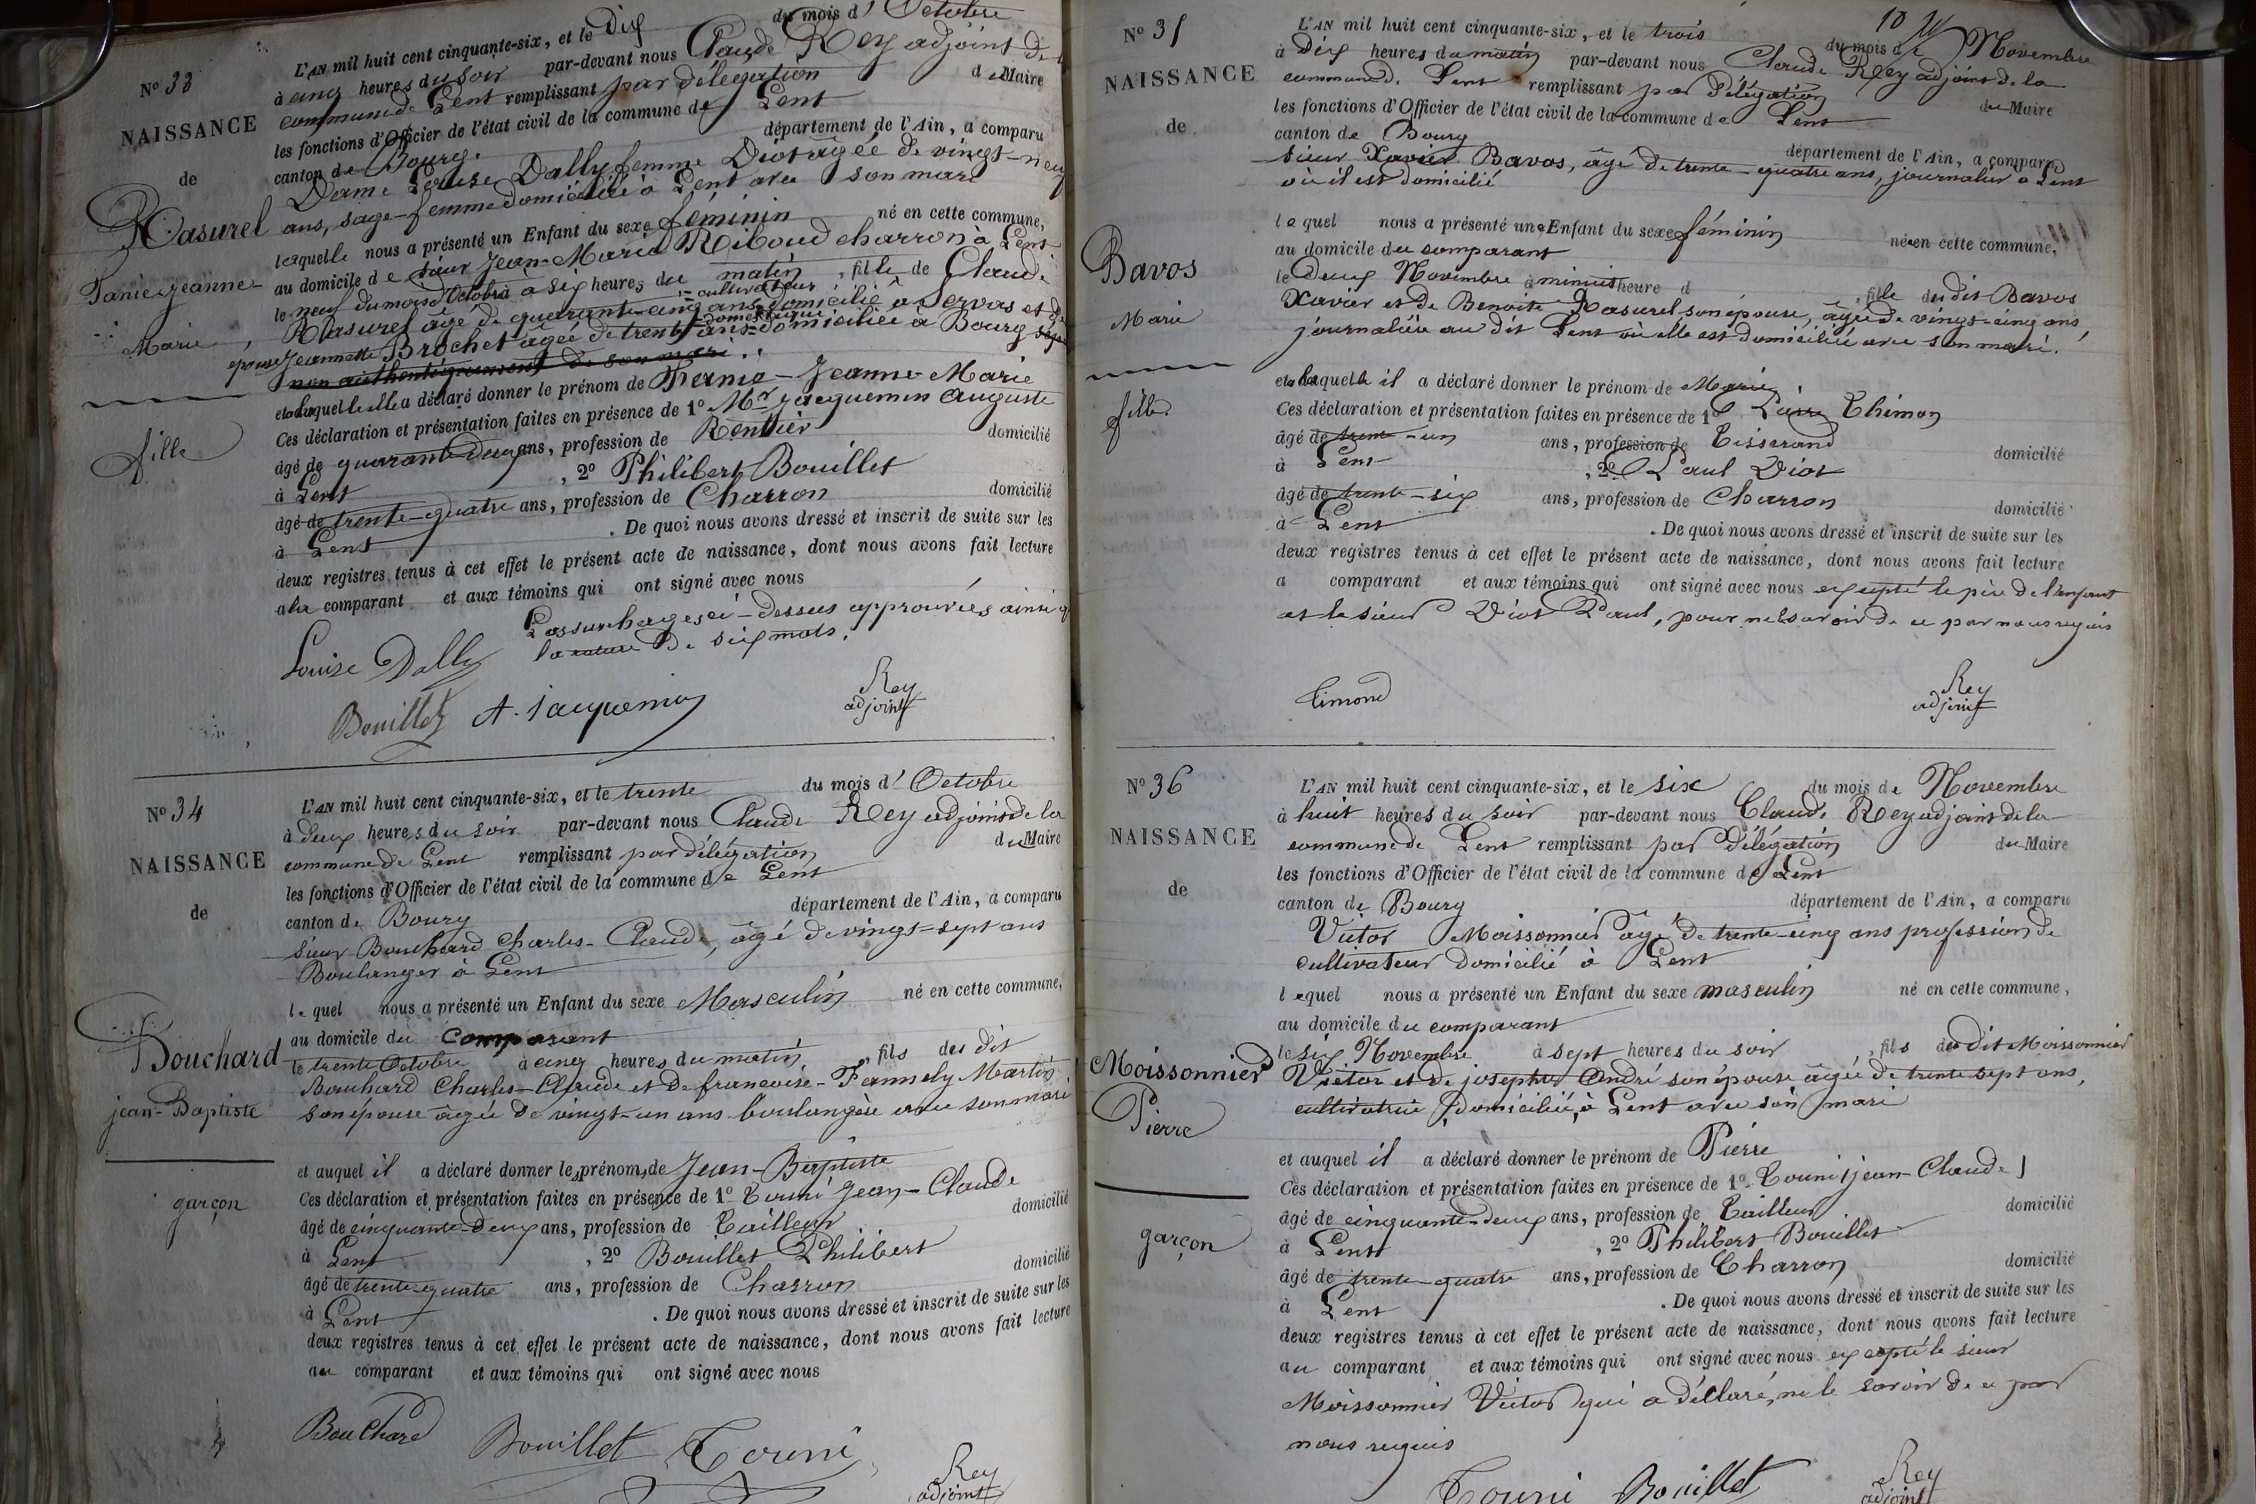 N.º 33
NAISSANCE
de
Rasurel
Jeanne
Marie
fille
du mois d'Octobre
L'AN mil huit cent cinquante-six, et le Dix
à cinq heures du soir par-devant nous Claude Rey adjoint de
commune de Lent remplissant par délégation du Maire
les fonctions d'Officier de l'état civil de la commune de Lent
canton de Bourg. département de l'Ain, a comparu
Dame Louise Dally femme Diot âgée de vingt-neuf
ans, sage-femme domiciliée à Lent avec son mari
laquelle nous a présenté un Enfant du sexe féminin né en cette commune,
au domicile de sieur Jean-Marie Riboud charron à Lent
le neuf du mois d'Octobre à six heures du matin, fille de Claude
cultivateur
Rasurel âgé de quarante-cinq ans domicilié à Servas et de
domestique
épouse Jeannette Brochet âgée de trente ans domiciliée à Bourg
non authentiquement de son mari
et à laquelle elle a déclaré donner le prénom de Jeanne-Marie
Ces déclaration et présentation faites en présence de 1º Mr Jacquemin Auguste
âgé de quarante-deux ans, profession de Rentier domicilié
à Lent, 2º Philibert Bouillet
âgé de trente-quatre ans, profession de Charron domicilié
à Lent. De quoi nous avons dressé et inscrit de suite sur les
deux registres tenus à cet effet le présent acte de naissance, dont nous avons fait lecture
à la comparant et aux témoins qui ont signé avec nous
Les surcharges ci-dessus approuvées ainsi q
la rature de six mots.
Louise Dally
Bouillet A. Jacquemin
Rey
adjoint
N.º 34
NAISSANCE
de
Bouchard
jean-Baptiste
garçon
L'AN mil huit cent cinquante-six, et le trente du mois d'Octobre
à deux heures du soir par-devant nous Claude Rey adjoint de la
commune de Lent remplissant par délégation du Maire
les fonctions d'Officier de l'état civil de la commune de Lent
canton de Bourg département de l'Ain, a comparu
sieur Bouchard Charles-Claude, âgé de vingt-sept ans
Boulanger à Lent
lequel nous a présenté un Enfant du sexe Masculin né en cette commune,
au domicile du comparant
le trente Octobre à cinq heures du matin, fils du dit
Bouchard Charles-Claude et de françoise-Fannely Martin
son épouse âgée de vingt-un ans boulangère avec son mari
et auquel il a déclaré donner les prénoms de Jean-Baptiste
Ces déclaration et présentation faites en présence de 1º Tourni Jean-Claude
âgé de cinquante-deux ans, profession de Tailleur domicilié
à Lent, 2º Bouillet Philibert
âgé de trente-quatre ans, profession de Charron domicilié
à Lent. De quoi nous avons dressé et inscrit de suite sur les
deux registres tenus à cet effet le présent acte de naissance, dont nous avons fait lecture
au comparant et aux témoins qui ont signé avec nous
Bouchard Bouillet Tourni
Rey
adjoint
N.º 35
NAISSANCE
de
Bavos
Marie
fille
L'AN mil huit cent cinquante-six, et le trois du mois de Novembre
à Dix heures du matin par-devant nous Claude Rey adjoint de la
commune de Lent remplissant par délégation du Maire
les fonctions d'Officier de l'état civil de la commune de Lent
canton de Bourg département de l'Ain, a comparu
sieur Xavier Bavos, âgé de trente-quatre ans, journalier à Lent
où il est domicilié
lequel nous a présenté une Enfant du sexe féminin née en cette commune,
au domicile du comparant
le Deux Novembre à minuit heure d, fille du dit Bavos
Xavier et de Benoite Rasurel son épouse, âgée de vingt-cinq ans,
journalière au dit Lent où elle est domiciliée avec son mari.
et à laquelle il a déclaré donner le prénom de Marie
Ces déclaration et présentation faites en présence de 1º Pierre Thimon
âgé de trente-un ans, profession de Tisserand domicilié
à Lent, 2º Paul Diot
âgé de trente-six ans, profession de Charron domicilié
à Lent. De quoi nous avons dressé et inscrit de suite sur les
deux registres tenus à cet effet le présent acte de naissance, dont nous avons fait lecture
a comparant et aux témoins qui ont signé avec nous excepté le père de l'enfant
et le sieur Diot Paul, pour ne le savoir de ce par nous requis
Timond
Rey
adjoint
N.º 36
NAISSANCE
de
Moissonnier
Pierre
garçon
L'AN mil huit cent cinquante-six, et le six du mois de Novembre
à huit heures du soir par-devant nous Claude Rey adjoint de la
commune de Lent remplissant par délégation du Maire
les fonctions d'Officier de l'état civil de la commune de Lent
canton de Bourg département de l'Ain, a comparu
Victor Moissonnier âgé de trente-cinq ans profession de
cultivateur domicilié à Lent
lequel nous a présenté un Enfant du sexe masculin né en cette commune,
au domicile du comparant
le six Novembre à sept heures du soir, fils du dit Moissonnier
Victor et de josephte André son épouse âgée de trente sept ans,
cultivatrice domiciliée à Lent avec son mari
et auquel il a déclaré donner le prénom de Pierre
Ces déclaration et présentation faites en présence de 1º Tourni jean-Claude
âgé de cinquante-deux ans, profession de Tailleur domicilié
à Lent, 2º Philibert Bouillet
âgé de trente-quatre ans, profession de Charron domicilié
à Lent. De quoi nous avons dressé et inscrit de suite sur les
deux registres tenus à cet effet le présent acte de naissance, dont nous avons fait lecture
au comparant et aux témoins qui ont signé avec nous excepté le sieur
Moissonnier Victor qui a déclaré ne le savoir de ce par
nous requis
Tourni Bouillet
Rey
adjoint